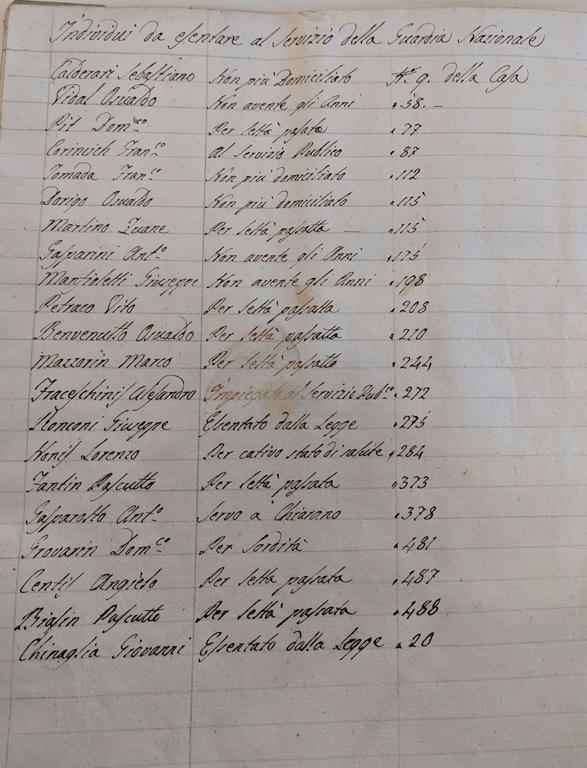 Individui da esentare al Servizio della Guardia Nazionale
Calderari Sebastiano Non più Domiciliato N.º 9. della Casa
Vidal Osualdo Non avente gli Anni " 58. —
Pit Dom.co Per l'età pasata " 77
Corinsich Fran.co Al servizio Publico " 87
Tomada Fran.co Non più domiciliato " 112
Dorigo Osualdo Non più domiciliato " 115
Martino Zuane Per l'età pasatta — " 115
Gasparini Ant.o Non avente gli Anni " 175
Manfioletti Giuseppe Non avente gli Anni " 198
Petraco Vito Per l'età pasatta " 208
Benvenutto Osualdo Per l'età pasatta " 210
Mazzorin Marco Per l'età pasatta " 244
Fraceschinis Alesandro Impiegato al Servizio Pub.co " 272
Ronconi Giuseppe Esentato dalla Legge " 275
Nonis Lorenzo Per cativo stato di salute " 284
Fantin Pascutto Per l'età pasata " 373
Gasparotto Ant.o Servo a Chiarano " 378
Trovarin Dom.co Per Sordità " 481
Centis Angielo Per l'età pasata " 487
Biasin Pascutto Per l'età pasata " 488
Chinaglia Giovanni Esentato dalla Legge " 20